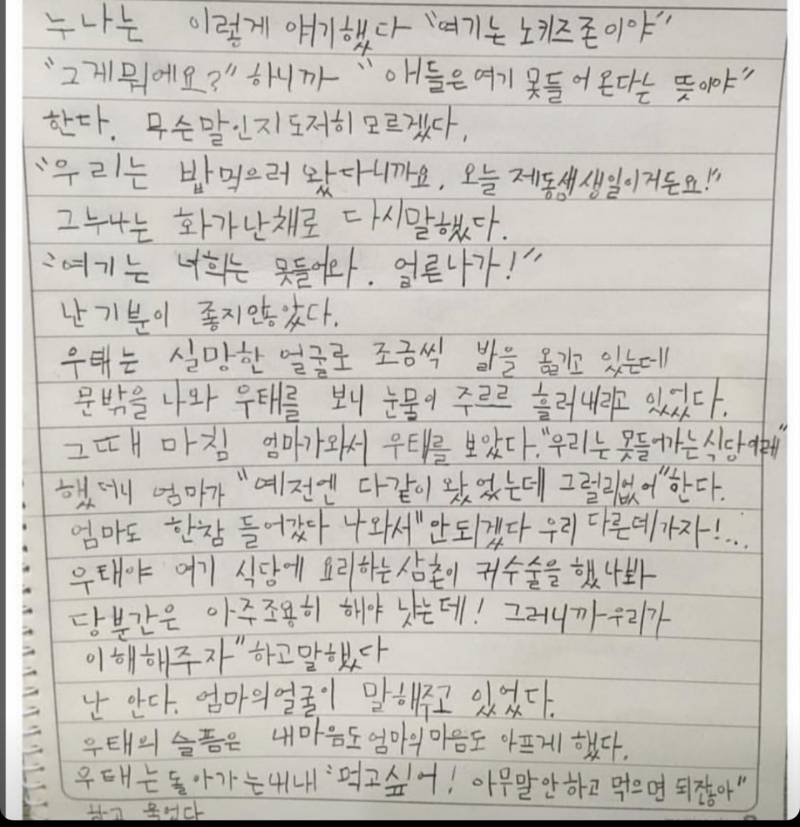 누나는 이렇게 얘기했다 "여기는 노키즈존이야"
"그게뭐에요?" 하니까 "애들은여기 못들어온다는 뜻이야"
한다. 무슨말인지도저히 모르겠다.
"우리는 밥먹으러 왔다니까요, 오늘 제동생생일이거든요!"
그누나는 화가난채로 다시말했다.
"여기는 너희는 못들어와. 얼른나가!"
난기분이 좋지않았다.
우태는 실망한 얼굴로 조금씩 발을 옮기고 있는데
문밖을 나와 우태를 보니 눈물이 주르르 흘러내리고 있었다.
그때 마침 엄마가와서 우태를 보았다."우리는못들어가는식당이래"
했더니 엄마가 "예전엔 다같이 왔었는데 그럴리없어"한다.
엄마도 한참 들어갔다 나와서"안되겠다 우리 다른데가자!...
우태야 여기 식당에 요리하는삼촌이 귀수술을 했나봐
당분간은 아주조용히 해야 낫는데! 그러니까우리가
이해해주자"하고말했다
난 안다. 엄마의얼굴이 말해주고 있었다.
우태의 슬픔은 내마음도엄마의마음도 아프게 했다.
우태는돌아가는내내 "먹고싶어! 아무말안하고 먹으면 되잖아"
하고 울었다